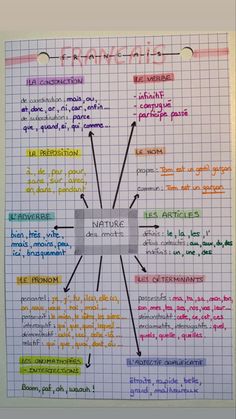 FRANÇAIS
LA CONJONCTION
de coordination : mais, ou,
et, donc, or, ni, car, enfin...
de subordination : parce
que, quand, si, qui, comme...
LE VERBE
- infinitif
- conjugué
- participe passé
LA PRÉPOSITION
à, de, par, pour,
sans, sur, avec,
en, dans, pendant
LE NOM
propre : Tom est un gentil garçon
commun : Tom est un garçon
L'ADVERBE
bien, très, vite,
mais, moins, peu,
ici, brusquement
NATURE
des mots
LES ARTICLES
définis : le, la, les, l'
définis contractés : au, aux, du, des
indéfinis : un, une, des
LE PRONOM
personnel : je, tu, il
possessif : le mien, le nôtre, le sien...
interrogatif : qui, que, quoi, lequel
démonstratif :
relatif : qui, que, quoi, dont, où...
LES DÉTERMINANTS
possessifs : ma, ta, sa, mon, ton,
son, mes, tes, ses, nos, vos, leur...
démonstratifs : cette, ce, cet, ces
exclamatifs, interrogatifs : quel,
quels, quelle, quelles
LES ONOMATOPÉES
- INTERJECTIONS
Boom, paf, ah, waouh !
L'ADJECTIF QUALIFICATIF
étroits, rapide, belle,
grand, malheureux